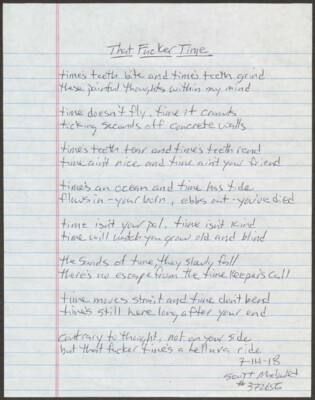 That Fucker Time
time's teeth bite and time's teeth grind
these painful thoughts within my mind
time doesn't fly, time it crawls
ticking seconds off concrete walls
time's teeth tear and time's teeth rend
time ain't nice and time ain't your friend
time's an ocean and time has tide
flows in - your born, ebbs out - you've died
time isn't your pal, time isn't kind
time will watch you grow old and blind
the sands of time, they slowly fall
there's no escape from the time keeper's call
time moves strait and time don't bend
time's still here long after your end
contrary to thought, not on your side
but that fucker time's a helluva ride
7-14-18
Scott